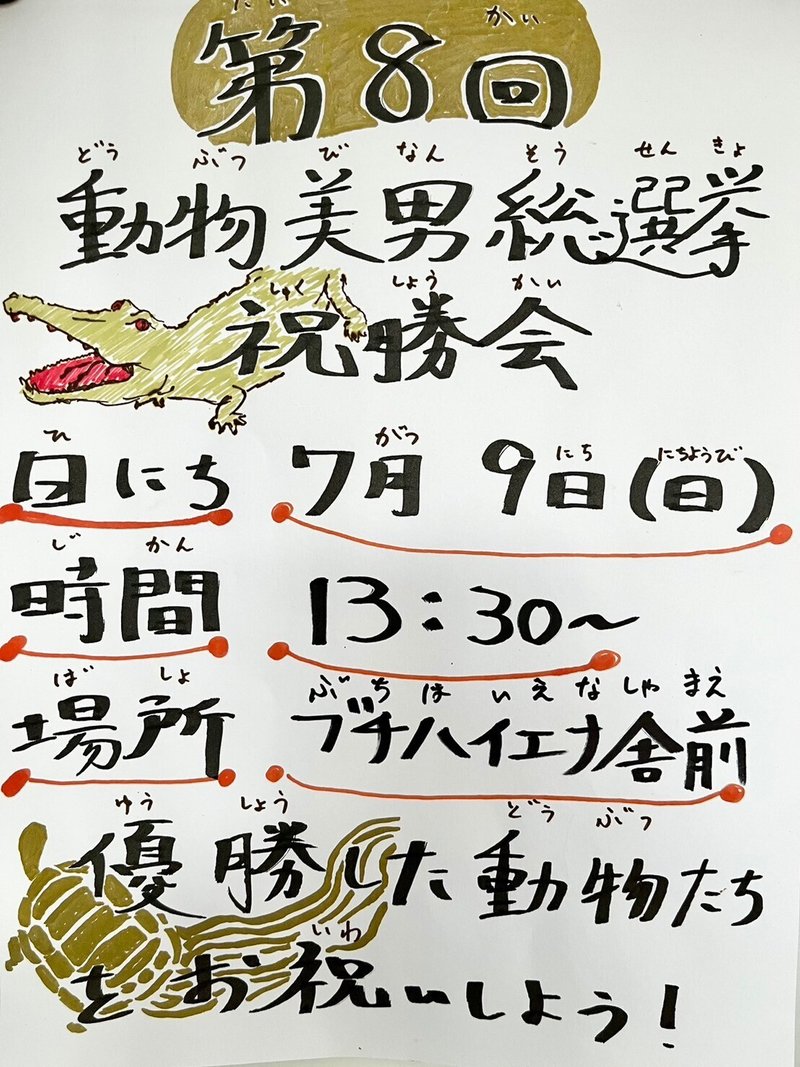 だい かい
第8回
どう ぶつ び なん そう せん きょ
動物美男総選挙
しゅく しょう かい
祝勝会
ひ がつ にち にちようび
日にち 7月 9日(日)
じ かん
時間 13:30~
ば しょ ぶ ち は い え な しゃ まえ
場所 ブチハイエナ舎前
ゆう しょう どう ぶつ
優勝した動物たち
いわ
をお祝いしよう!